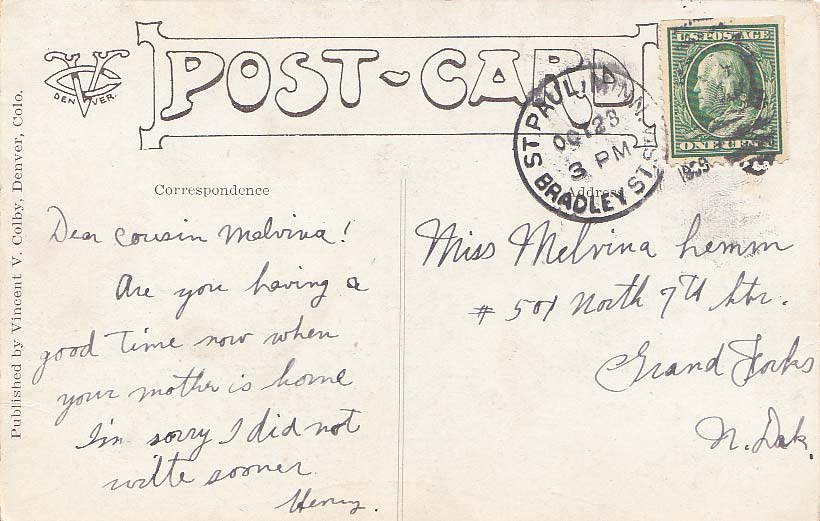 POST-CARD
DENVER.
Published by Vincent V. Colby, Denver, Colo.
U.S. POSTAGE
ONE CENT
ST. PAUL, MINN.
OCT 28
3 PM
1909
BRADLEY ST.
Correspondence
Address
Dear cousin Melvina!
Are you having a
good time now when
your mother is home
I'm sorry I did not
write sooner
Henry.
Miss Melvina Lemm
# 501 North 7th Str.
Grand Forks
N. Dak.